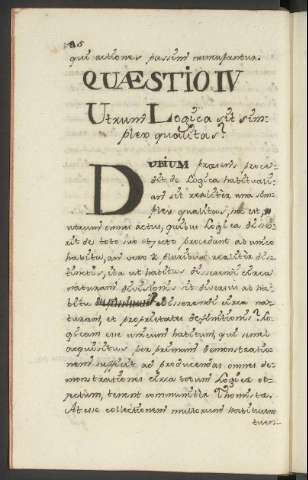 86
qui actiones passim nuncupantur.
QUÆSTIO IV
Utrum Logica sit sim-
plex qualitas?
DUBIUM præsens proce-
dit de Logica habituali:
an sit realiter una sim-
plex qualitas, ut
utrum omnes actus, quibus Logica disse-
rit de toto suo objecto procedant ab unico
habitu, an vero a pluribus realiter dis-
tinctis, ita ut habitus disserens circa
naturam divisionis sit diversus ab ha-
bitu disserendi circa na-
turam, et proprietates definitionis? Lo-
gicam esse unicum habitum, qui semel
acquisitus per primam demonstratio-
nem sufficit ad producendas omnes de-
monstrationes circa totum Logicæ ob-
jectum, tenent communiter Thomistæ.
At esse collectionem multorum habituum